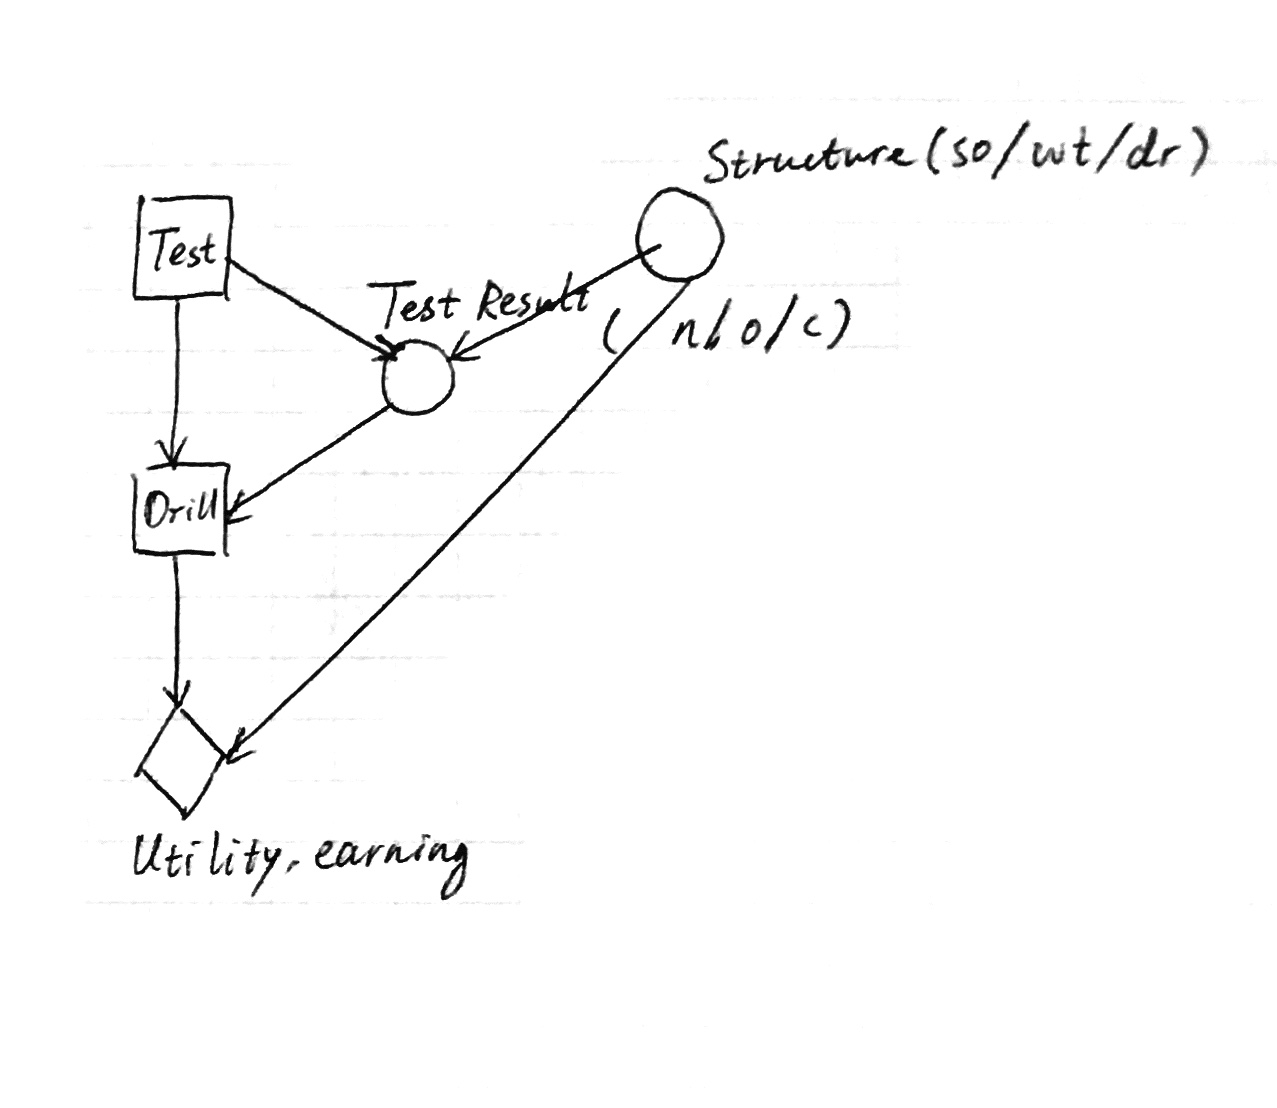 Structure (so/wt/dr)
Test
Test Result
( n/ o/ c)
Drill
Utility, earning